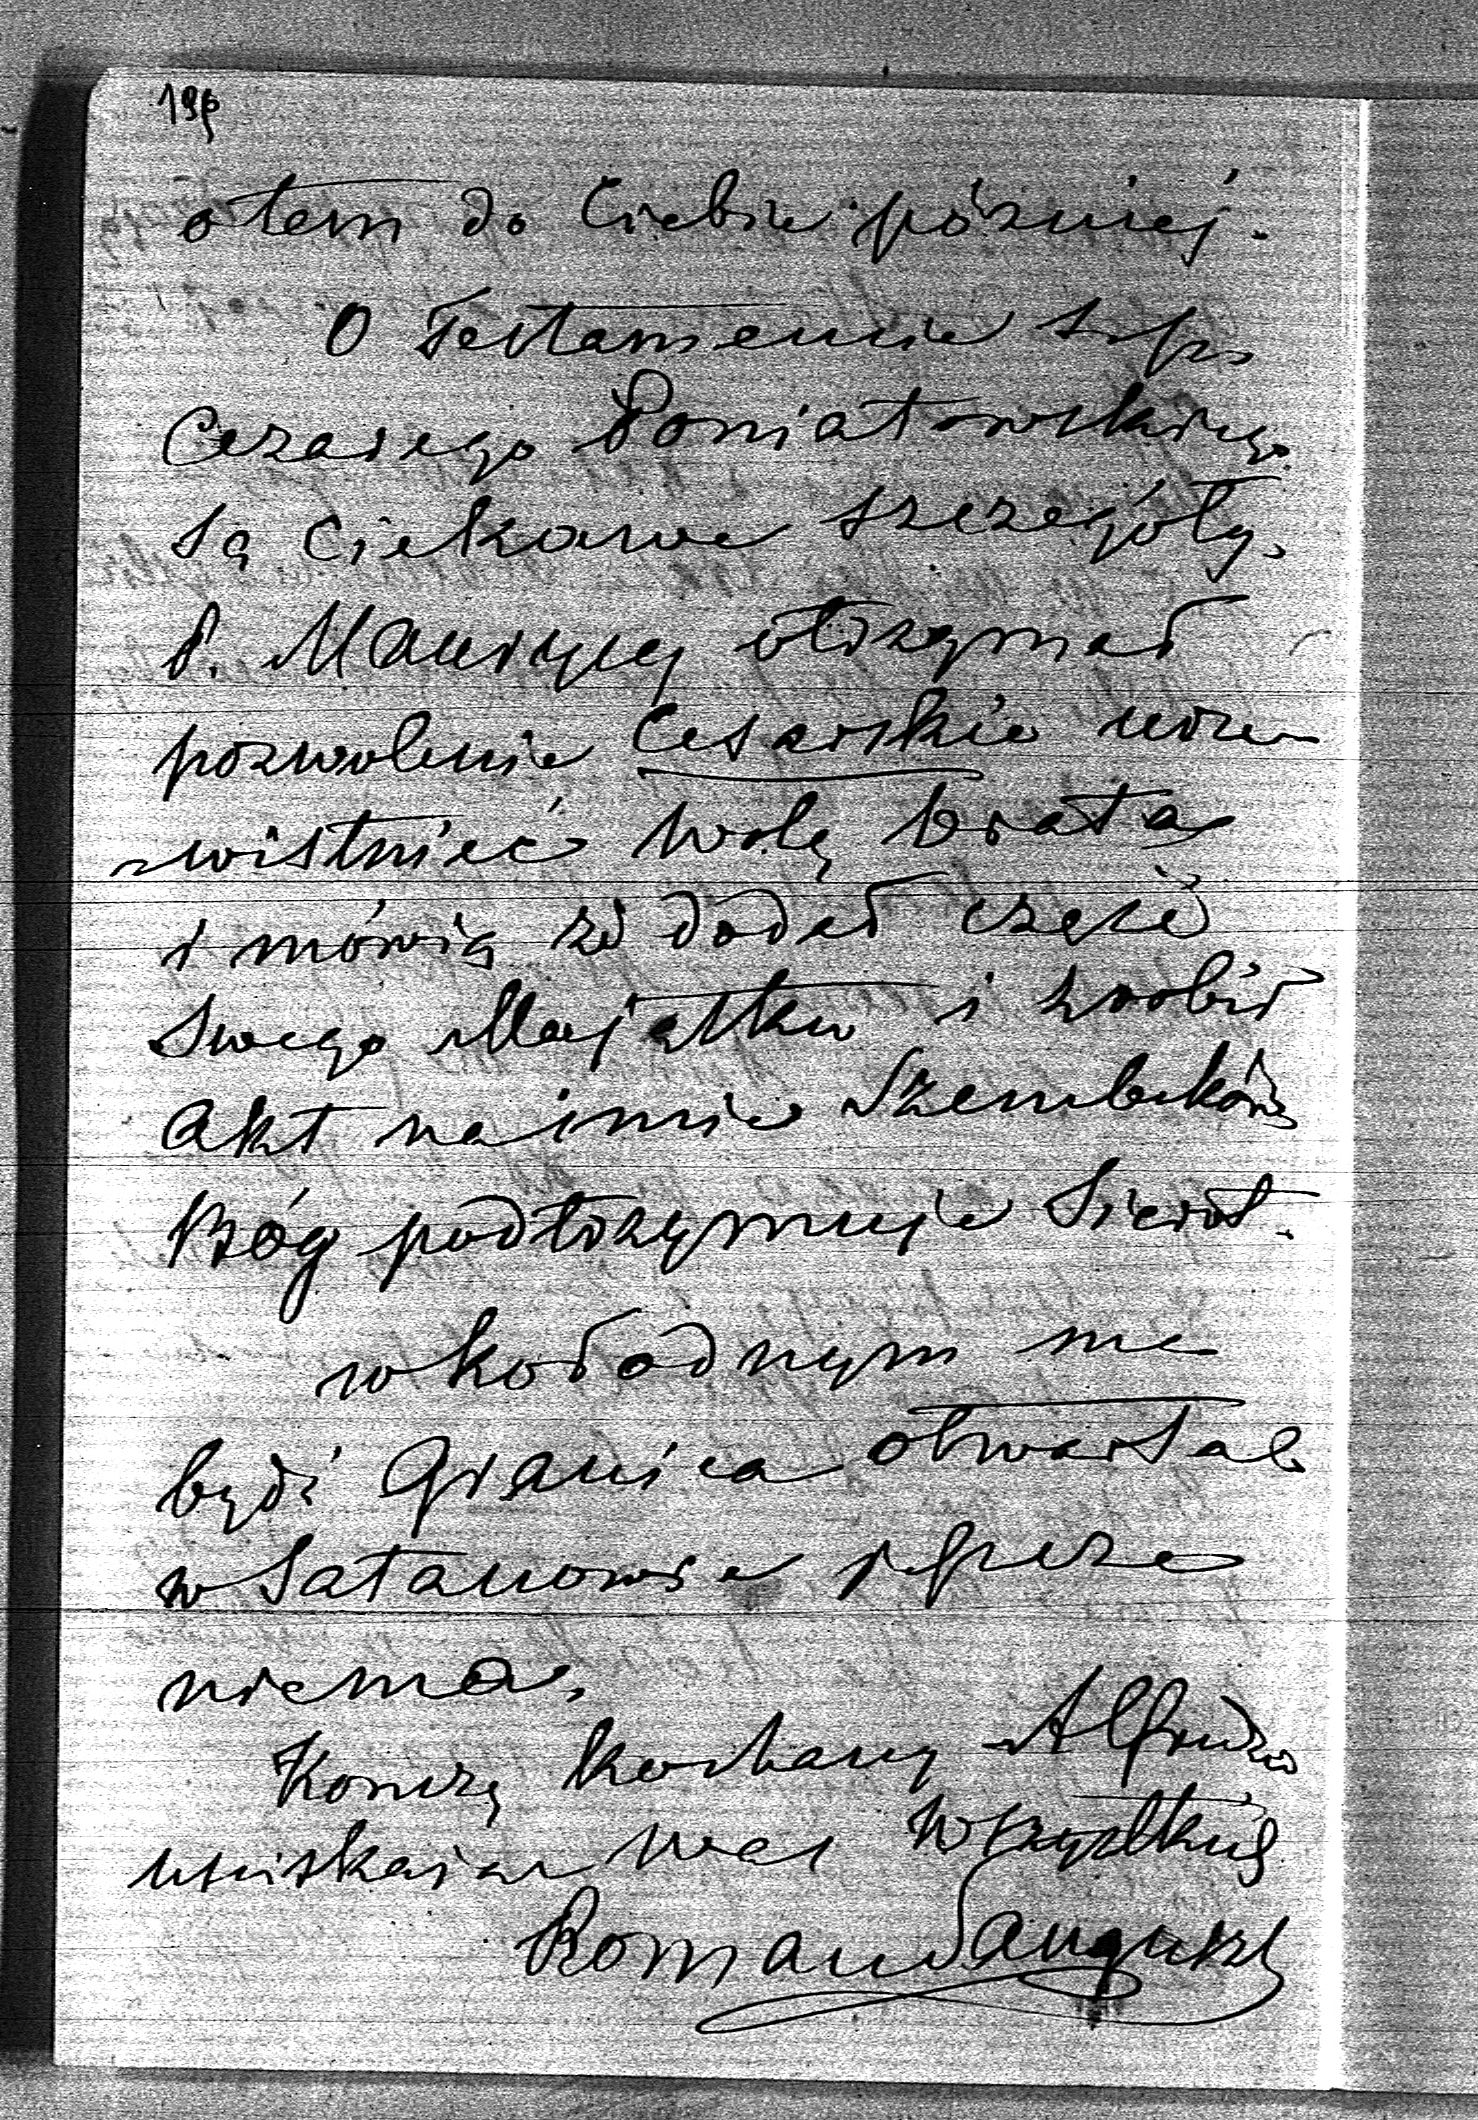 o tem do Ciebie później.
O Testamencie ś. p.
Cezarego Poniatowskiego
są Ciekawe szczegóły.
P. Maurycy otrzymał
pozwolenie Cesarskie urze-
wistnieć wolę brata
i mówią że dodał część
swego Majątku i zrobił
Akt na imie Szembeków
Bóg podtrzymuje Sierot.
w kołodnym me
będzi Granica otwarta
w Satanowie jeszcze
niema.
Kończę kochany Alfredzie
uściskając was wszystkich
Roman Sanguszko